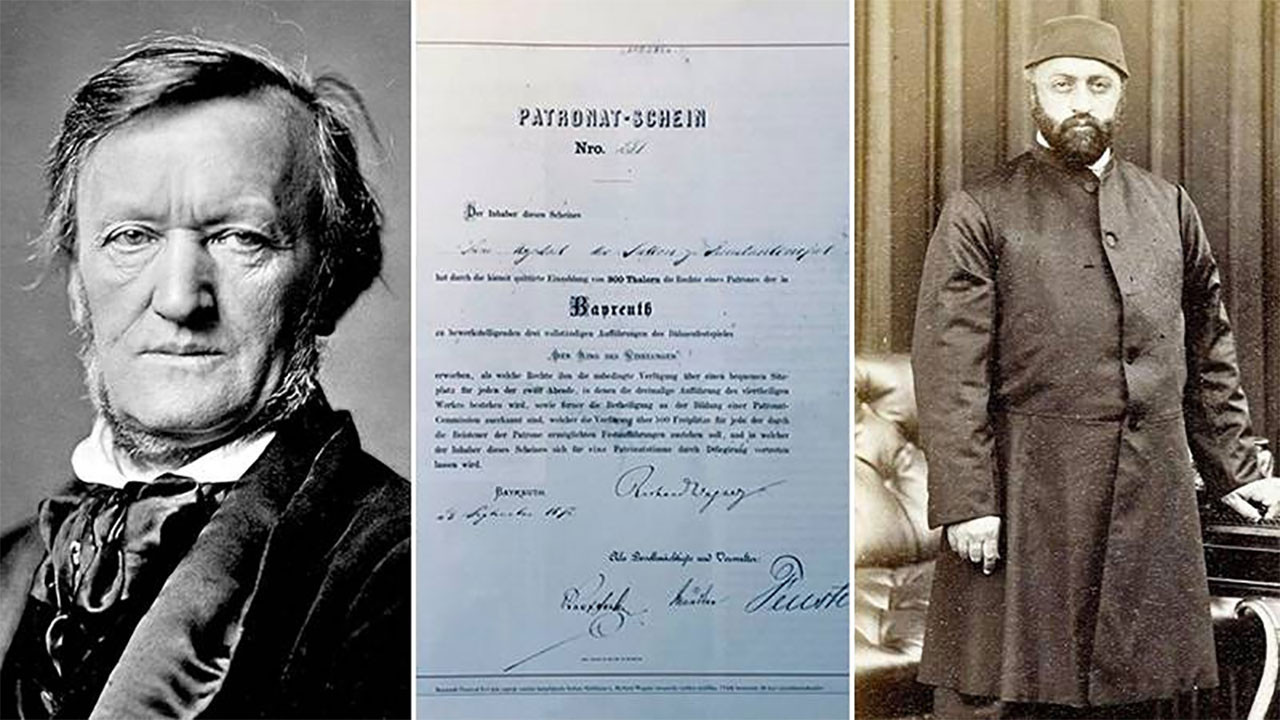 PATRONAT-SCHEIN
Nro.
Der Inhaber dieses Scheines
hat durch die hiemit quittirte Einzahlung von 300 Thalern die Rechte eines Patrones der in
Bayreuth
zu bewerkstelligenden drei vollständigen Aufführungen des Bühnenfestspieles
„DER RING DES NIBELUNGEN"
erworben, als welche Rechte ihm die unbedingte Verfügung über einen bequemen Sitz-
platz für jeden der zwölf Abende, in denen die dreimalige Aufführung des viertheiligen
Werkes bestehen wird, sowie ferner die Betheiligung an der Bildung einer Patronat-
Commission zuerkannt sind, welcher die Verfügung über 500 Freiplätze für jede der durch
die Beisteuer der Patrone ermöglichten Festaufführungen zustehen soll, und in welcher
der Inhaber dieses Scheines sich für eine Patronatstimme durch Delegirung vertreten
lassen wird.
BAYREUTH
Richard Wagner
Als Bevollmächtigte und Verwalter:
Feustel